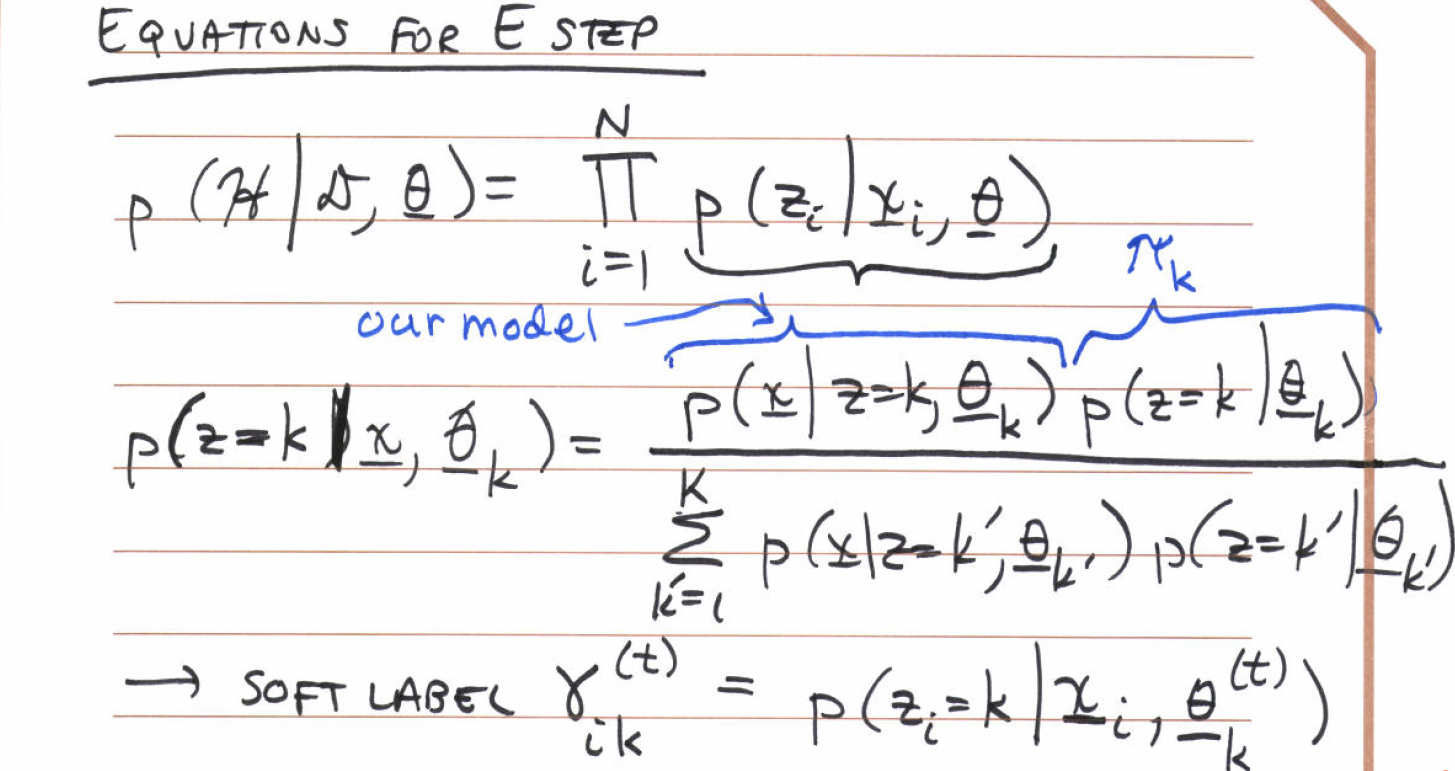 EQUATIONS FOR E STEP
p(ℋ|𝒟, θ) = ∏_{i=1}^{N} p(z_i|x_i, θ)
π_k
our model
p(z=k|x, θ_k) = p(x|z=k, θ_k) p(z=k|θ_k) / ∑_{k'=1}^{K} p(x|z=k', θ_{k'}) p(z=k'|θ_{k'})
→ SOFT LABEL γ_{ik}^{(t)} = p(z_i=k|x_i, θ_k^{(t)})